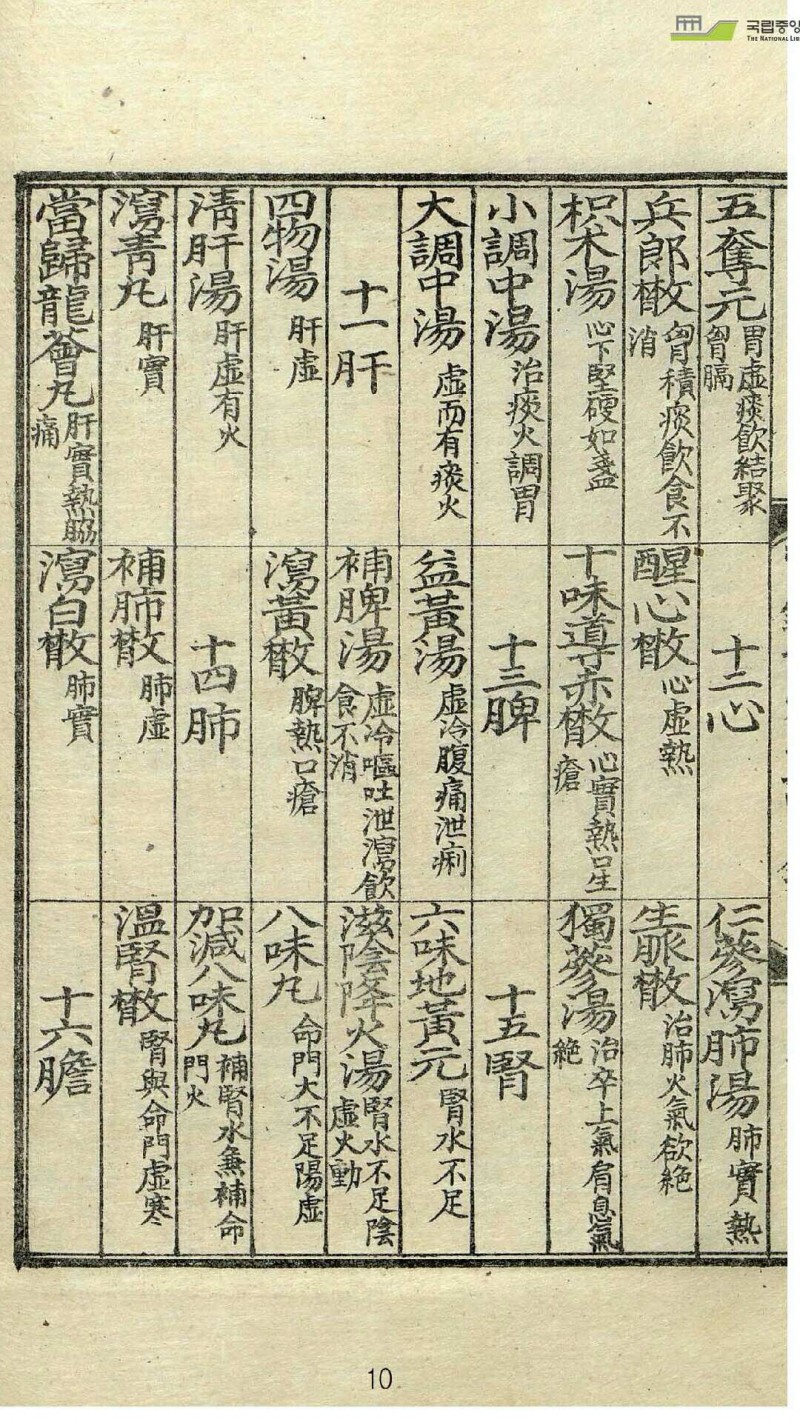 국립중앙
THE NATIONAL LIB
五奪元 胃虛痰飮結聚
胷膈
兵郎㪚 胷積痰飮食不
消
枳朮湯 心下堅硬如盞
小調中湯 治痰火調胃
大調中湯 虛而有痰火
十一肝
四物湯 肝虛
淸肝湯 肝虛有火
瀉靑丸 肝實
當歸龍薈丸 肝實熱脇
痛
十二心
醒心㪚 心虛熱
十味導赤㪚 心實熱口生
瘡
十三脾
益黃湯 虛冷腹痛泄痢
補脾湯 虛冷嘔吐泄瀉飮
食不消
瀉黃㪚 脾熱口瘡
十四肺
補肺㪚 肺虛
瀉白㪚 肺實
仁蔘瀉肺湯 肺實熱
生脈㪚 治肺火氣欲絶
獨蔘湯 治卒上氣肩息氣
絶
十五腎
六味地黃元 腎水不足
滋陰降火湯 腎水不足陰
虛火動
八味丸 命門大不足陽虛
加減八味丸 補腎水兼補命
門火
溫腎㪚 腎與命門虛寒
十六膽
10